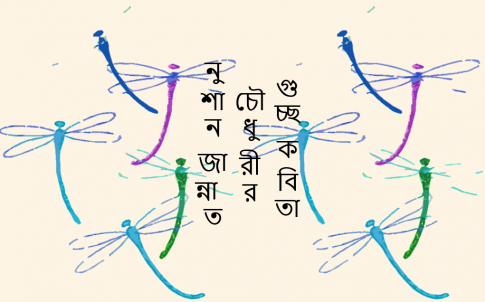 নুশান জান্নাত
চৌধুরীর
গুচ্ছ কবিতা